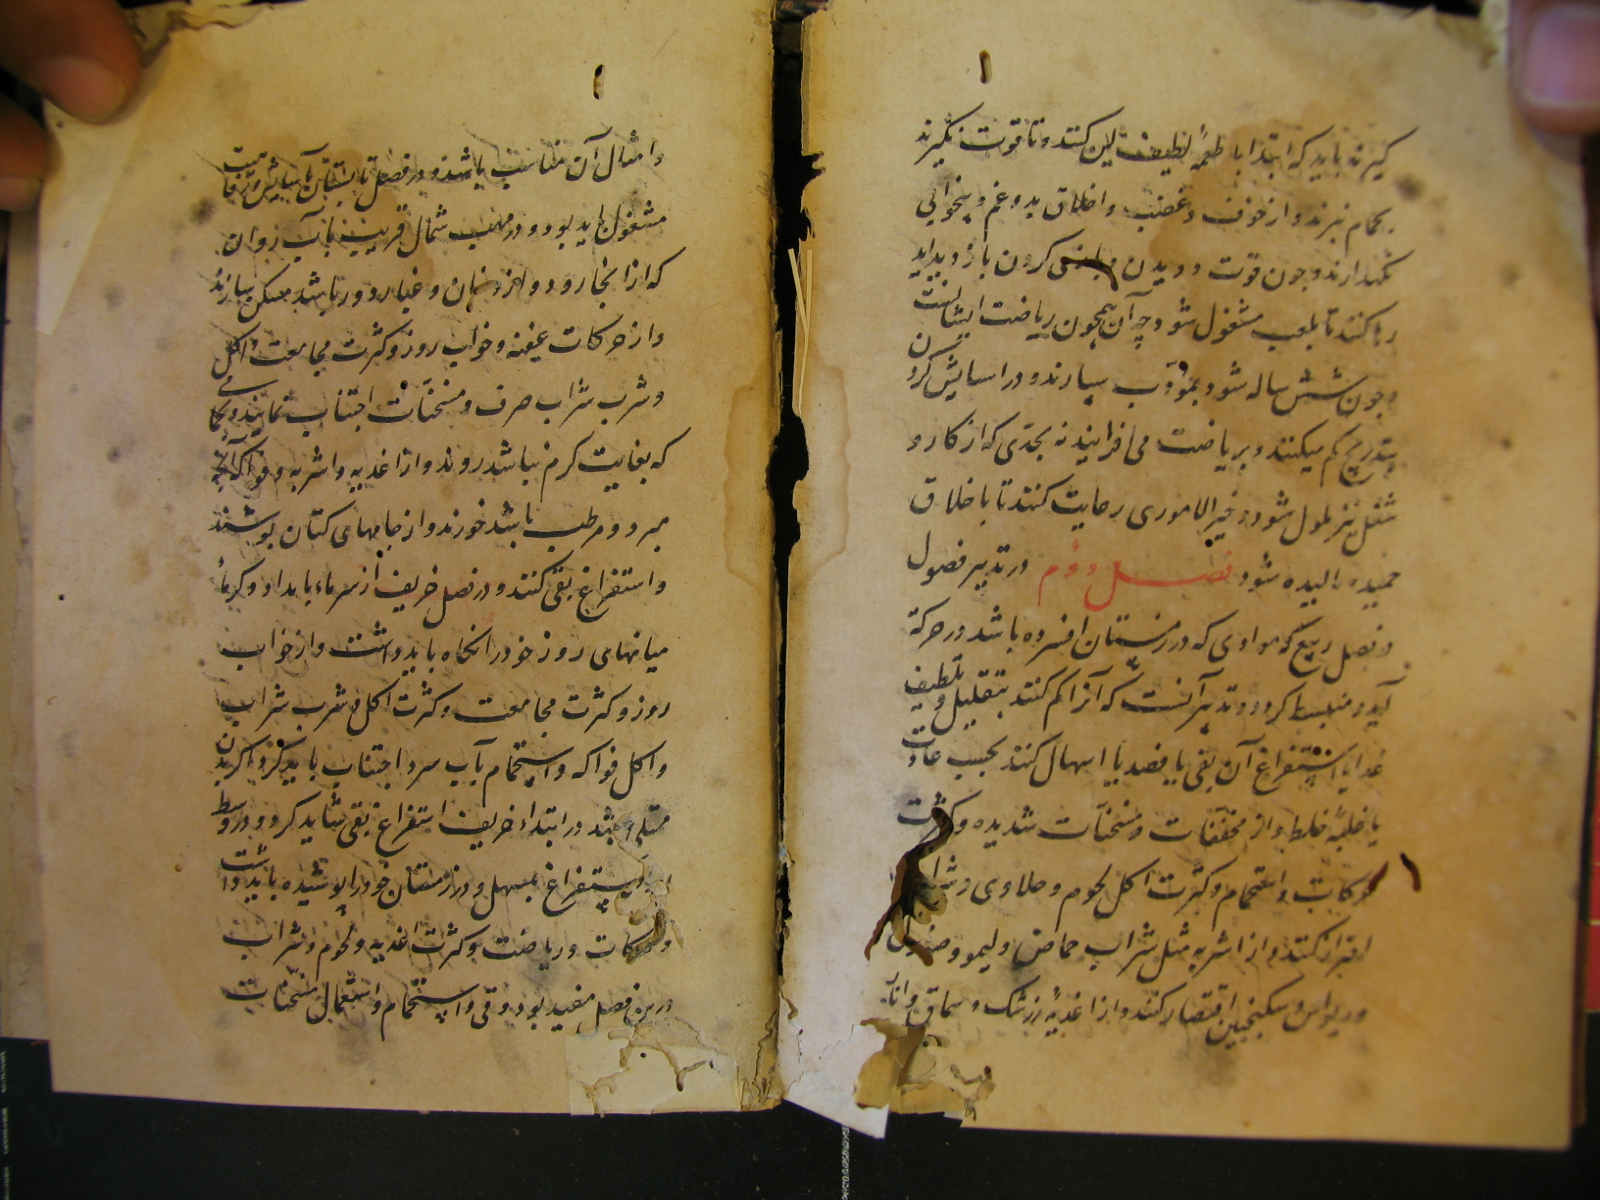 گیرند باید که ابتدا باطعمهٔ لطیف لین کنند و تا قوت نگیرند
بحمام نبرند و از خوف و غضب و اخلاق بد و غم و بیخوابی
نگهدارند و چون قوت دویدن و بازی کردن بازو پدید اید
رها کنند تا بلعب مشغول شود چه آن همچون ریاضت ایشانست
و چون شش ساله شود بمؤدب سپارند و در اسایش کردن
بتدریج کم میکنند و بریاضت می افزایند نه بحدی که از کار و
شغل نیز ملول شود و خیر الاموری رعایت کنند تا باخلاق
حمیده بالیده شود فصل دوم در تدبیر فصول
در فصل ربیع که موادی که در زمستان افسرده باشد در حرکة
آید و منبسط کردد و تدبیر آنست که آنرا کم کنند بتقلیل و تلطیف
غذا یا استفراغ آن بقی یا فصد یا اسهال کنند بحسب عادت
یا غلبهٔ خلط و از مجففات و مسخنات شدیده و کثرت
حرکات و استحمام و کثرت اکل لحوم و حلاوی و شراب
احتراز کنند و از اشربه مثل شراب حماض و لیمو و
و ریواس و سکنجبین اقتصار کنند و از اغذیهٔ زرشک و سماق و انار
و امثال آن مناسب باشد و در فصل تابستان بآسایش و رفاهیت
مشغول باید بود و در مهب شمال قریب بآب روان
که از انجا رود و از دخان و غبار دور باشد مسکن سازند
و از حرکات عنیفه و خواب روز و کثرت مجامعت و اکل
و شرب شراب صرف و مسخنات اجتناب نمایند و بحمامی
که بغایت کرم نباشد روند و از اغذیه و اشربه و فواکه آنچه
مبرد و مرطب باشد خورند و از جامهای کتان پوشند
و استفراغ بقی کنند و در فصل خریف از سرماء بامداد و کرماء
میانهای روز خود را نکاه باید داشت و از خواب
روز و کثرت مجامعت و کثرت اکل و شرب شراب
و اکل فواکه و استحمام بآب سرد اجتناب باید کرد و اکر بدن
ممتلی باشد در ابتداء خریف استفراغ بقی شاید کرد و در وسط
استفراغ بمسهل و در زمستان خود را پوشیده باید داشت
و حرکات و ریاضت و کثرت اغذیه و لحوم و شراب
درین فصل مفید بود و قی و استحمام و استعمال مسخنات